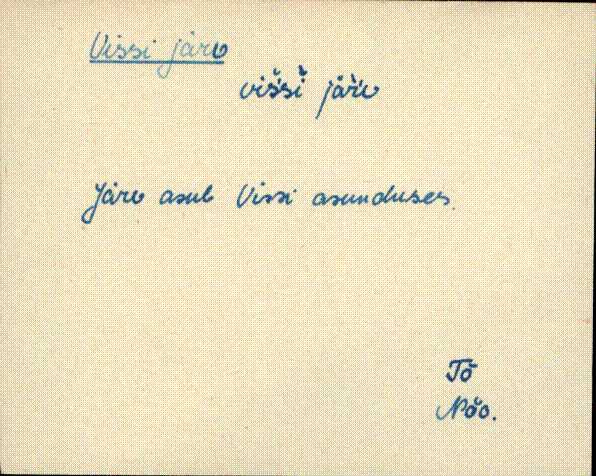 Vissi järv
višsì jäŕv
Järv asub Vissi asunduses.
Tõ
Nõo.